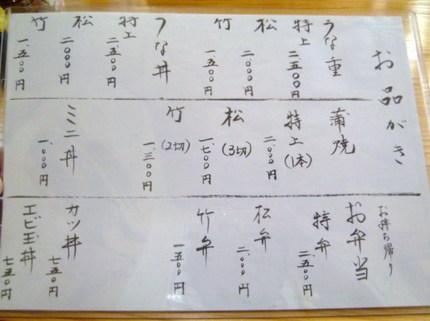 お品がき
うな重
特上 二五〇〇円
松 二〇〇〇円
竹 一五〇〇円
うな丼
特上 二五〇〇円
松 二〇〇〇円
竹 一、五〇〇円
蒲焼
特上(1本) 二、〇〇〇円
松(3切) 一、七〇〇円
竹(2切) 一三〇〇円
ミニ丼 一、〇〇〇円
お持ち帰り
お弁当
特弁 二、五〇〇円
松弁 二、〇〇〇円
竹弁 一五〇〇円
カツ丼 七五〇円
エビ玉丼 七五〇円